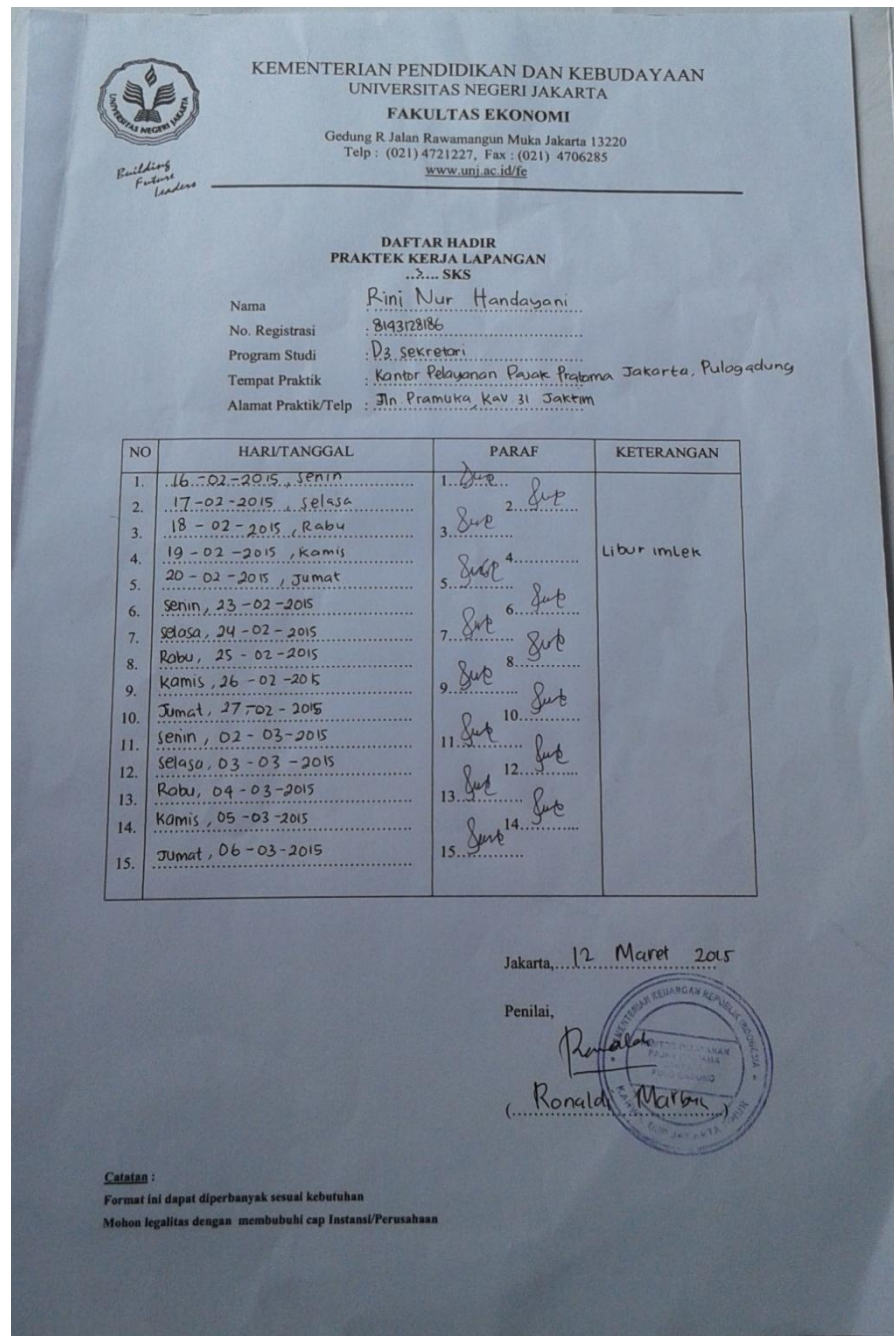 KEMENTERIAN PENDIDIKAN DAN KEBUDAYAAN
UNIVERSITAS NEGERI JAKARTA
FAKULTAS EKONOMI
Gedung R Jalan Rawamangun Muka Jakarta 13220
Telp : (021) 4721227, Fax : (021) 4706285
www.unj.ac.id/fe
UNIVERSITAS NEGERI JAKARTA
Building
Future
Leaders
DAFTAR HADIR
PRAKTEK KERJA LAPANGAN
SKS
Nama Rini Nur Handayani
No. Registrasi : 8143128186
Program Studi : D3 Sekretari
Tempat Praktik : Kantor Pelayanan Pajak Pratama Jakarta, Pulogadung
Alamat Praktik/Telp : Jln Pramuka, Kav 31 Jaktim
NO HARI/TANGGAL PARAF KETERANGAN
1. 16-02-2015, Senin 1.
2. 17-02-2015, Selasa 2.
3. 18-02-2015, Rabu 3.
4. 19-02-2015, Kamis 4. Libur imlek
5. 20-02-2015, Jumat 5.
6. Senin, 23-02-2015 6.
7. Selasa, 24-02-2015 7.
8. Rabu, 25-02-2015 8.
9. Kamis, 26-02-2015 9.
10. Jumat, 27-02-2015 10.
11. Senin, 02-03-2015 11.
12. Selasa, 03-03-2015 12.
13. Rabu, 04-03-2015 13.
14. Kamis, 05-03-2015 14.
15. Jumat, 06-03-2015 15.
Jakarta, 12 Maret 2015
Penilai,
KEMENTERIAN KEUANGAN REPUBLIK INDONESIA
(Ronald)
Catatan :
Format ini dapat diperbanyak sesuai kebutuhan
Mohon legalitas dengan membubuhi cap Instansi/Perusahaan